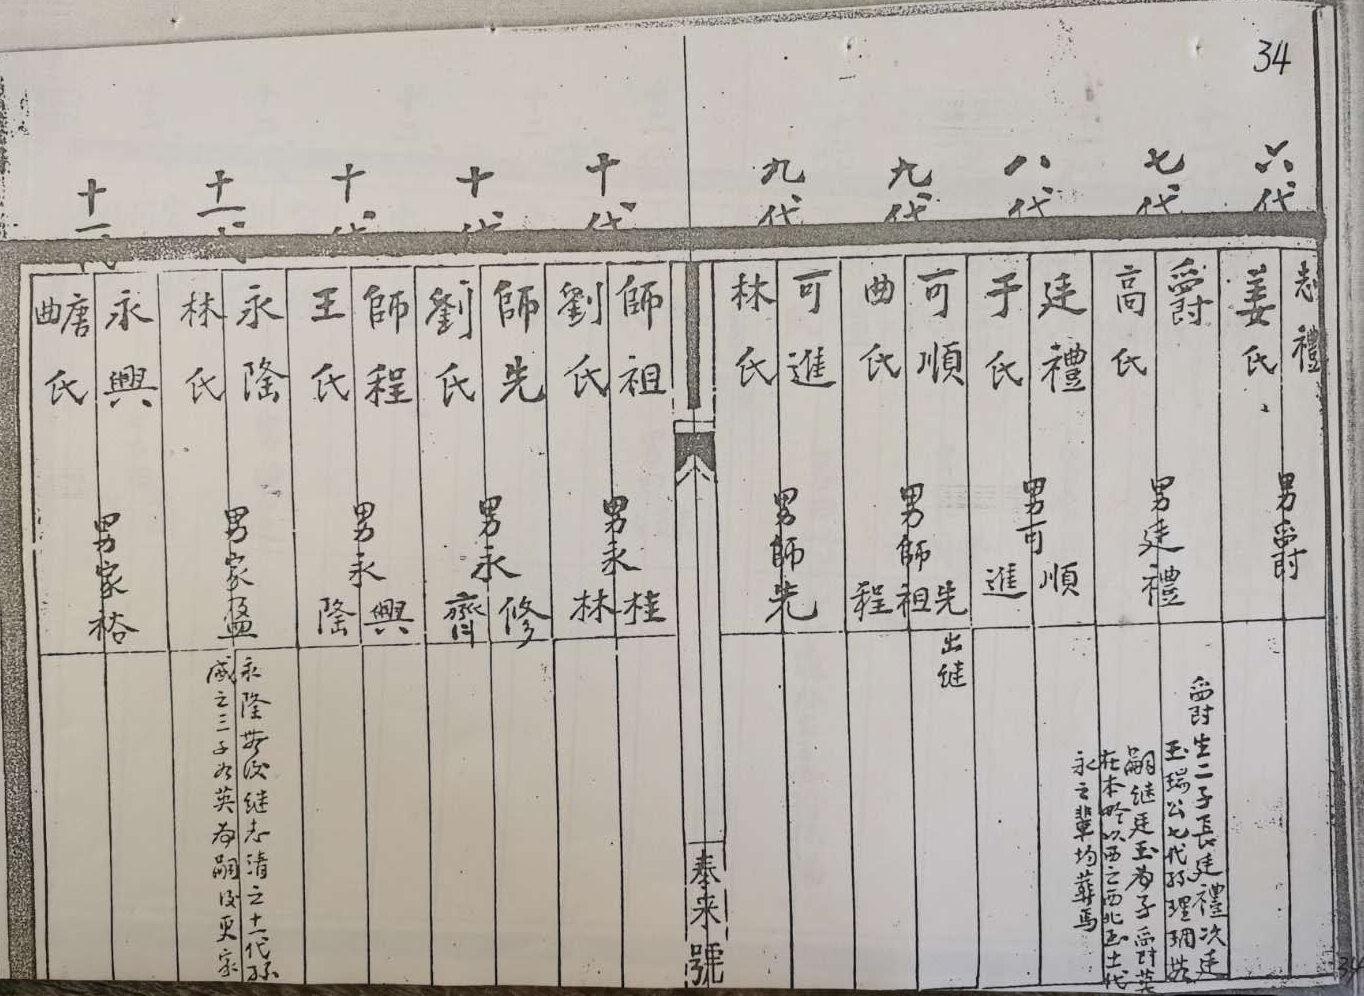 34
六代
志禮
姜氏
男爵
七代
爵
高氏
男廷禮
爵生二子長廷禮次廷
玉瑞公七代孫理珊無
嗣继廷玉為子爵葬
在本吟以西之西北至十代
永之輩均葬焉
八代
廷禮
于氏
男可順
進
九代
可順
曲氏
男師先
祖
程
出继
九代
可進
林氏
男師先
泰来號
十代
師祖
劉氏
男永桂
林
十代
師先
劉氏
男永修
齊
十代
師程
王氏
男永興
隆
十一代
永隆
林氏
男家盈
永隆無後继志清之十一代孫
之三子为英為嗣後更家
十一代
永興
唐氏
曲
男家裕
34